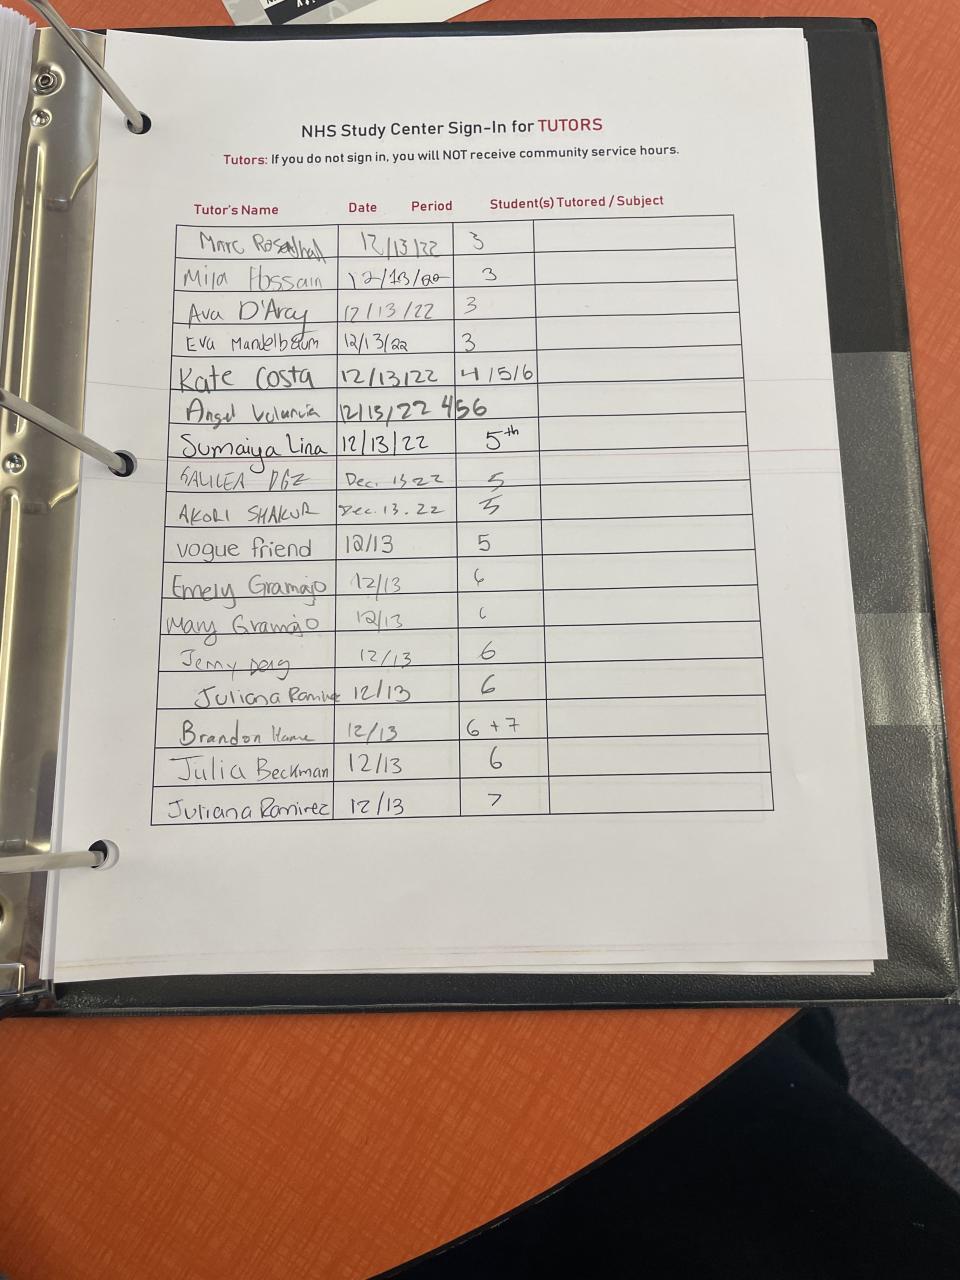 NHS Study Center Sign-In for TUTORS
Tutors: If you do not sign in, you will NOT receive community service hours.
Tutor's Name Date Period Student(s) Tutored / Subject
Marc 12/13/22 3
Mija Hossain 12/13/22 3
Ava D'Arcy 12/13/22 3
Eva Mandelbaum 12/13/22 3
Kate Costa 12/13/22 4/5/6
Angel 12/13/22 456
Sumaiya Lina 12/13/22 5th
GALILEA DGZ Dec. 13 22 5
AKORI SHAKUR Dec. 13. 22 5
vogue friend 12/13 5
Emely Gramajo 12/13 6
Mary Gramajo 12/13 6
Jenny 12/13 6
Juliana Ramirez 12/13 6
Brandon 12/13 6 + 7
Julia Beckman 12/13 6
Juliana Ramirez 12/13 7